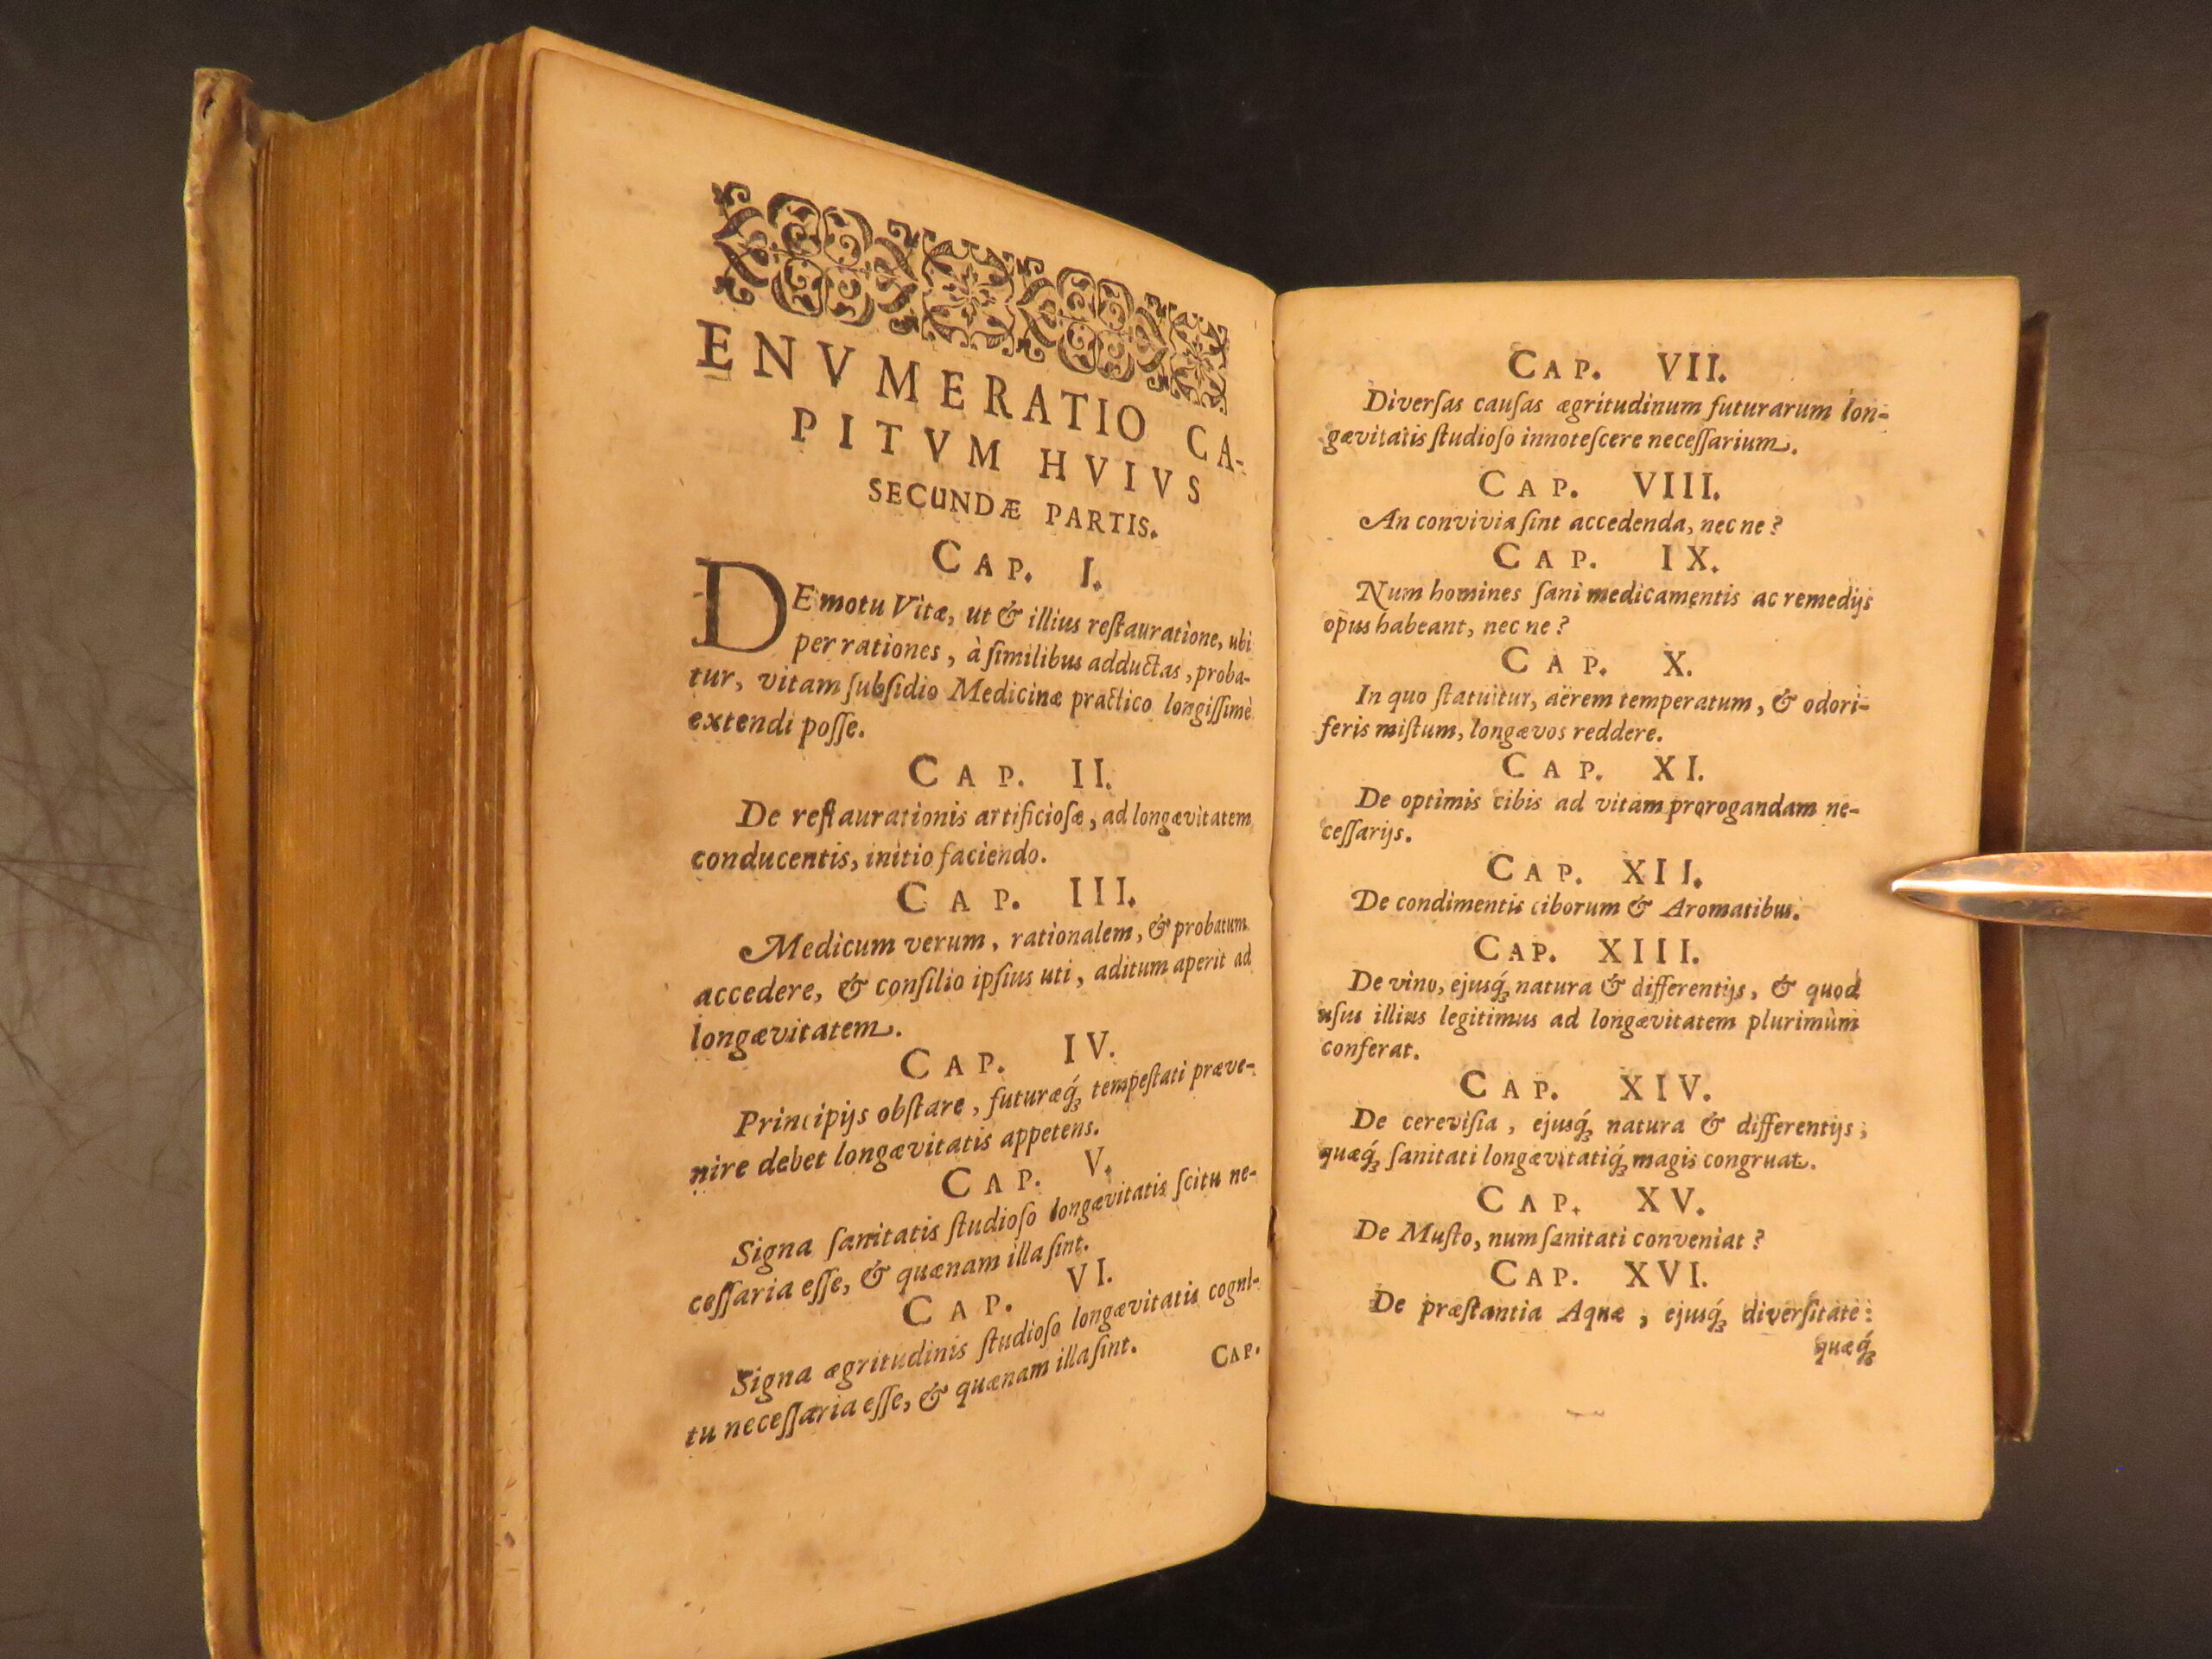 ENVMERATIO CA-
PITVM HVIVS
SECUNDÆ PARTIS.
CAP. I.
DE motu Vitæ, ut & illius reſtauratione, ubi
per rationes, à ſimilibus adductas, proba-
tur, vitam ſubſidio Medicinæ practico longiſſimè
extendi poſſe.
CAP. II.
De reſtaurationis artificioſæ, ad longævitatem
conducentis, initio faciendo.
CAP. III.
Medicum verum, rationalem, & probatum
accedere, & conſilio ipſius uti, aditum aperit ad
longævitatem.
CAP. IV.
Principijs obſtare, futuræq́ꝫ tempeſtati præve-
nire debet longævitatis appetens.
CAP. V.
Signa ſanitatis ſtudioſo longævitatis ſcitu ne-
ceſſaria eſſe, & quænam illa ſint.
CAP. VI.
Signa ægritudinis ſtudioſo longævitatis cogni-
tu neceſſaria eſſe, & quænam illa ſint.
CAP.
CAP. VII.
Diverſas cauſas ægritudinum futurarum lon-
gævitatis ſtudioſo innoteſcere neceſſarium.
CAP. VIII.
An convivia ſint accedenda, nec ne?
CAP. IX.
Num homines ſani medicamentis ac remedijs
opus habeant, nec ne?
CAP. X.
In quo ſtatuitur, aërem temperatum, & odori-
feris miſtum, longævos reddere.
CAP. XI.
De optimis cibis ad vitam prorogandam ne-
ceſſarijs.
CAP. XII.
De condimentis ciborum & Aromatibus.
CAP. XIII.
De vino, ejusq́ꝫ natura & differentijs, & quod
uſus illius legitimus ad longævitatem plurimùm
conferat.
CAP. XIV.
De cereviſia, ejusq́ꝫ natura & differentijs;
quæq́ꝫ ſanitati longævitatiq́ꝫ magis congruat.
CAP. XV.
De Muſto, num ſanitati conveniat?
CAP. XVI.
De præſtantia Aquæ, ejusq́ꝫ diverſitate:
quæq́ꝫ